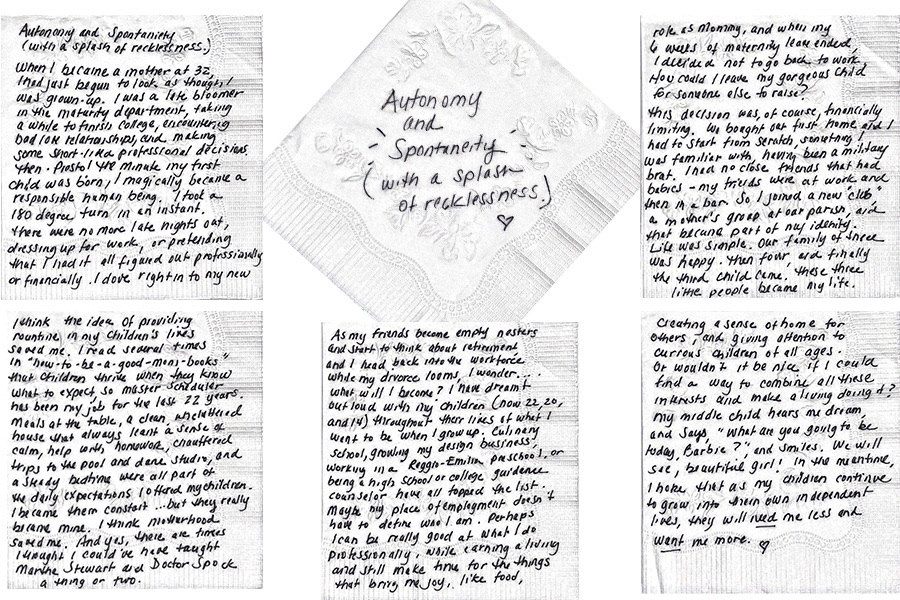 Autonomy and Spontaniety
(with a splash of recklessness.)
When I became a mother at 32,
I had just begun to look as though I
was grown-up. I was a late bloomer
in the maturity department, taking
a while to finish college, encountering
bad love relationships, and making
some short-lived professional decisions.
Then - Presto! The minute my first
child was born, I magically became a
responsible human being. I took a
180 degree turn in an instant.
There were no more late nights out,
dressing up for work, or pretending
that I had it all figured out professionally
or financially. I dove right in to my new
Autonomy
and
Spontaneity
(with a splash
of recklessness.)
role as Mommy, and when my
6 weeks of maternity leave ended,
I decided not to go back to work.
How could I leave my gorgeous child
for someone else to raise?
This decision was, of course, financially
limiting. We bought our first home and I
had to start from scratch, something I
was familiar with, having been a military
brat. I had no close friends that had
babies - my friends were at work and
then in a bar. So I joined a new "club",
a mother's group at our parish, and
that became part of my identity.
Life was simple. Our family of three
was happy. Then four, and finally
the third child came. These three
little people became my life.
I think the idea of providing
rountine in my children's lives
saved me. I read several times
in "how-to-be-a-good-mom-books"
that children thrive when they know
what to expect, so master scheduler
has been my job for the last 22 years.
Meals at the table, a clean, uncluttered
house that always leant a sense of
calm, help with homework, chauffered
trips to the pool and dance studio, and
a steady bedtime were all part of
the daily expectations I offered my children.
I became their constant ...but they really
became mine. I think motherhood
saved me. And yes, there are times
I thought I could've have taught
Martha Stewart and Doctor Spock
a thing or two.
As my friends become empty nesters
and start to think about retirement
and I head back into the workforce
while my divorce looms, I wonder....
what will I become? I have dreamt
out loud with my children (now 22, 20,
and 14) throughout their lives of what I
want to be when I grow up. Culinary
school, growing my design business,
working in a Reggio-Emilia preschool, or
being a high school or college guidance
counselor have all topped the list.
Maybe my place of employment doesn't
have to define who I am. Perhaps
I can be really good at what I do
professionally, while earning a living
and still make time for the things
that bring me joy, like food,
Creating a sense of home for
others, and giving attention to
curious children of all ages.
Or wouldn't it be nice if I could
find a way to combine all these
interests and make a living doing it?
My middle child hears me dream,
and says, "What are you going to be
today, Barbie?", and smiles. We will
see, beautiful girl! In the meantime,
I hope that as my children continue
to grow into their own independent
lives, they will need me less and
want me more.